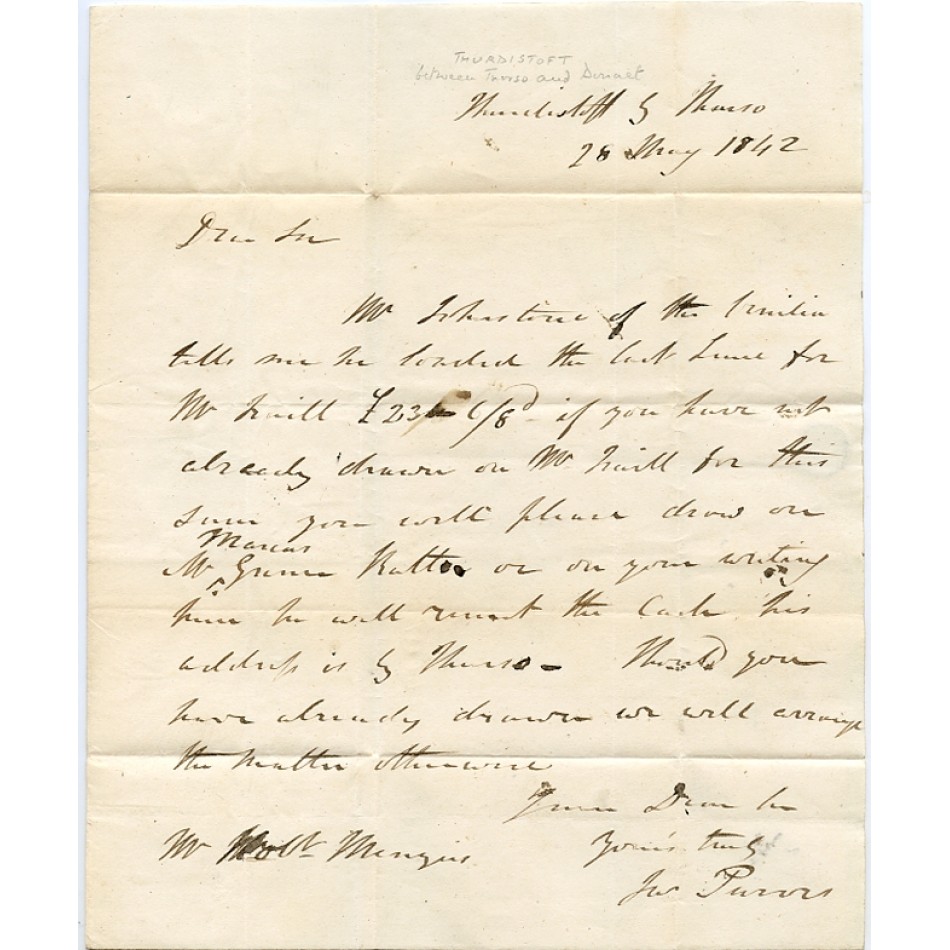 THURDISTOFT
between Thurso and Dunnet
Thurdistoff by Thurso
28 May 1842
Dear Sir
Mr Johnstone of the
tells me he loaded the last Lime for
Mr Traill £23 6/8d if you have not
already drawn on Mr Traill for this
sum you will please draw on
Marcus
Mr Gunn Ratter or on your writing
him he will remit the Cash his
address is by Thurso - Should you
have already drawn we will arrange
the matter otherwise
Dear Sir
Mr Robt Menzies
Yours truly
Jno Purves